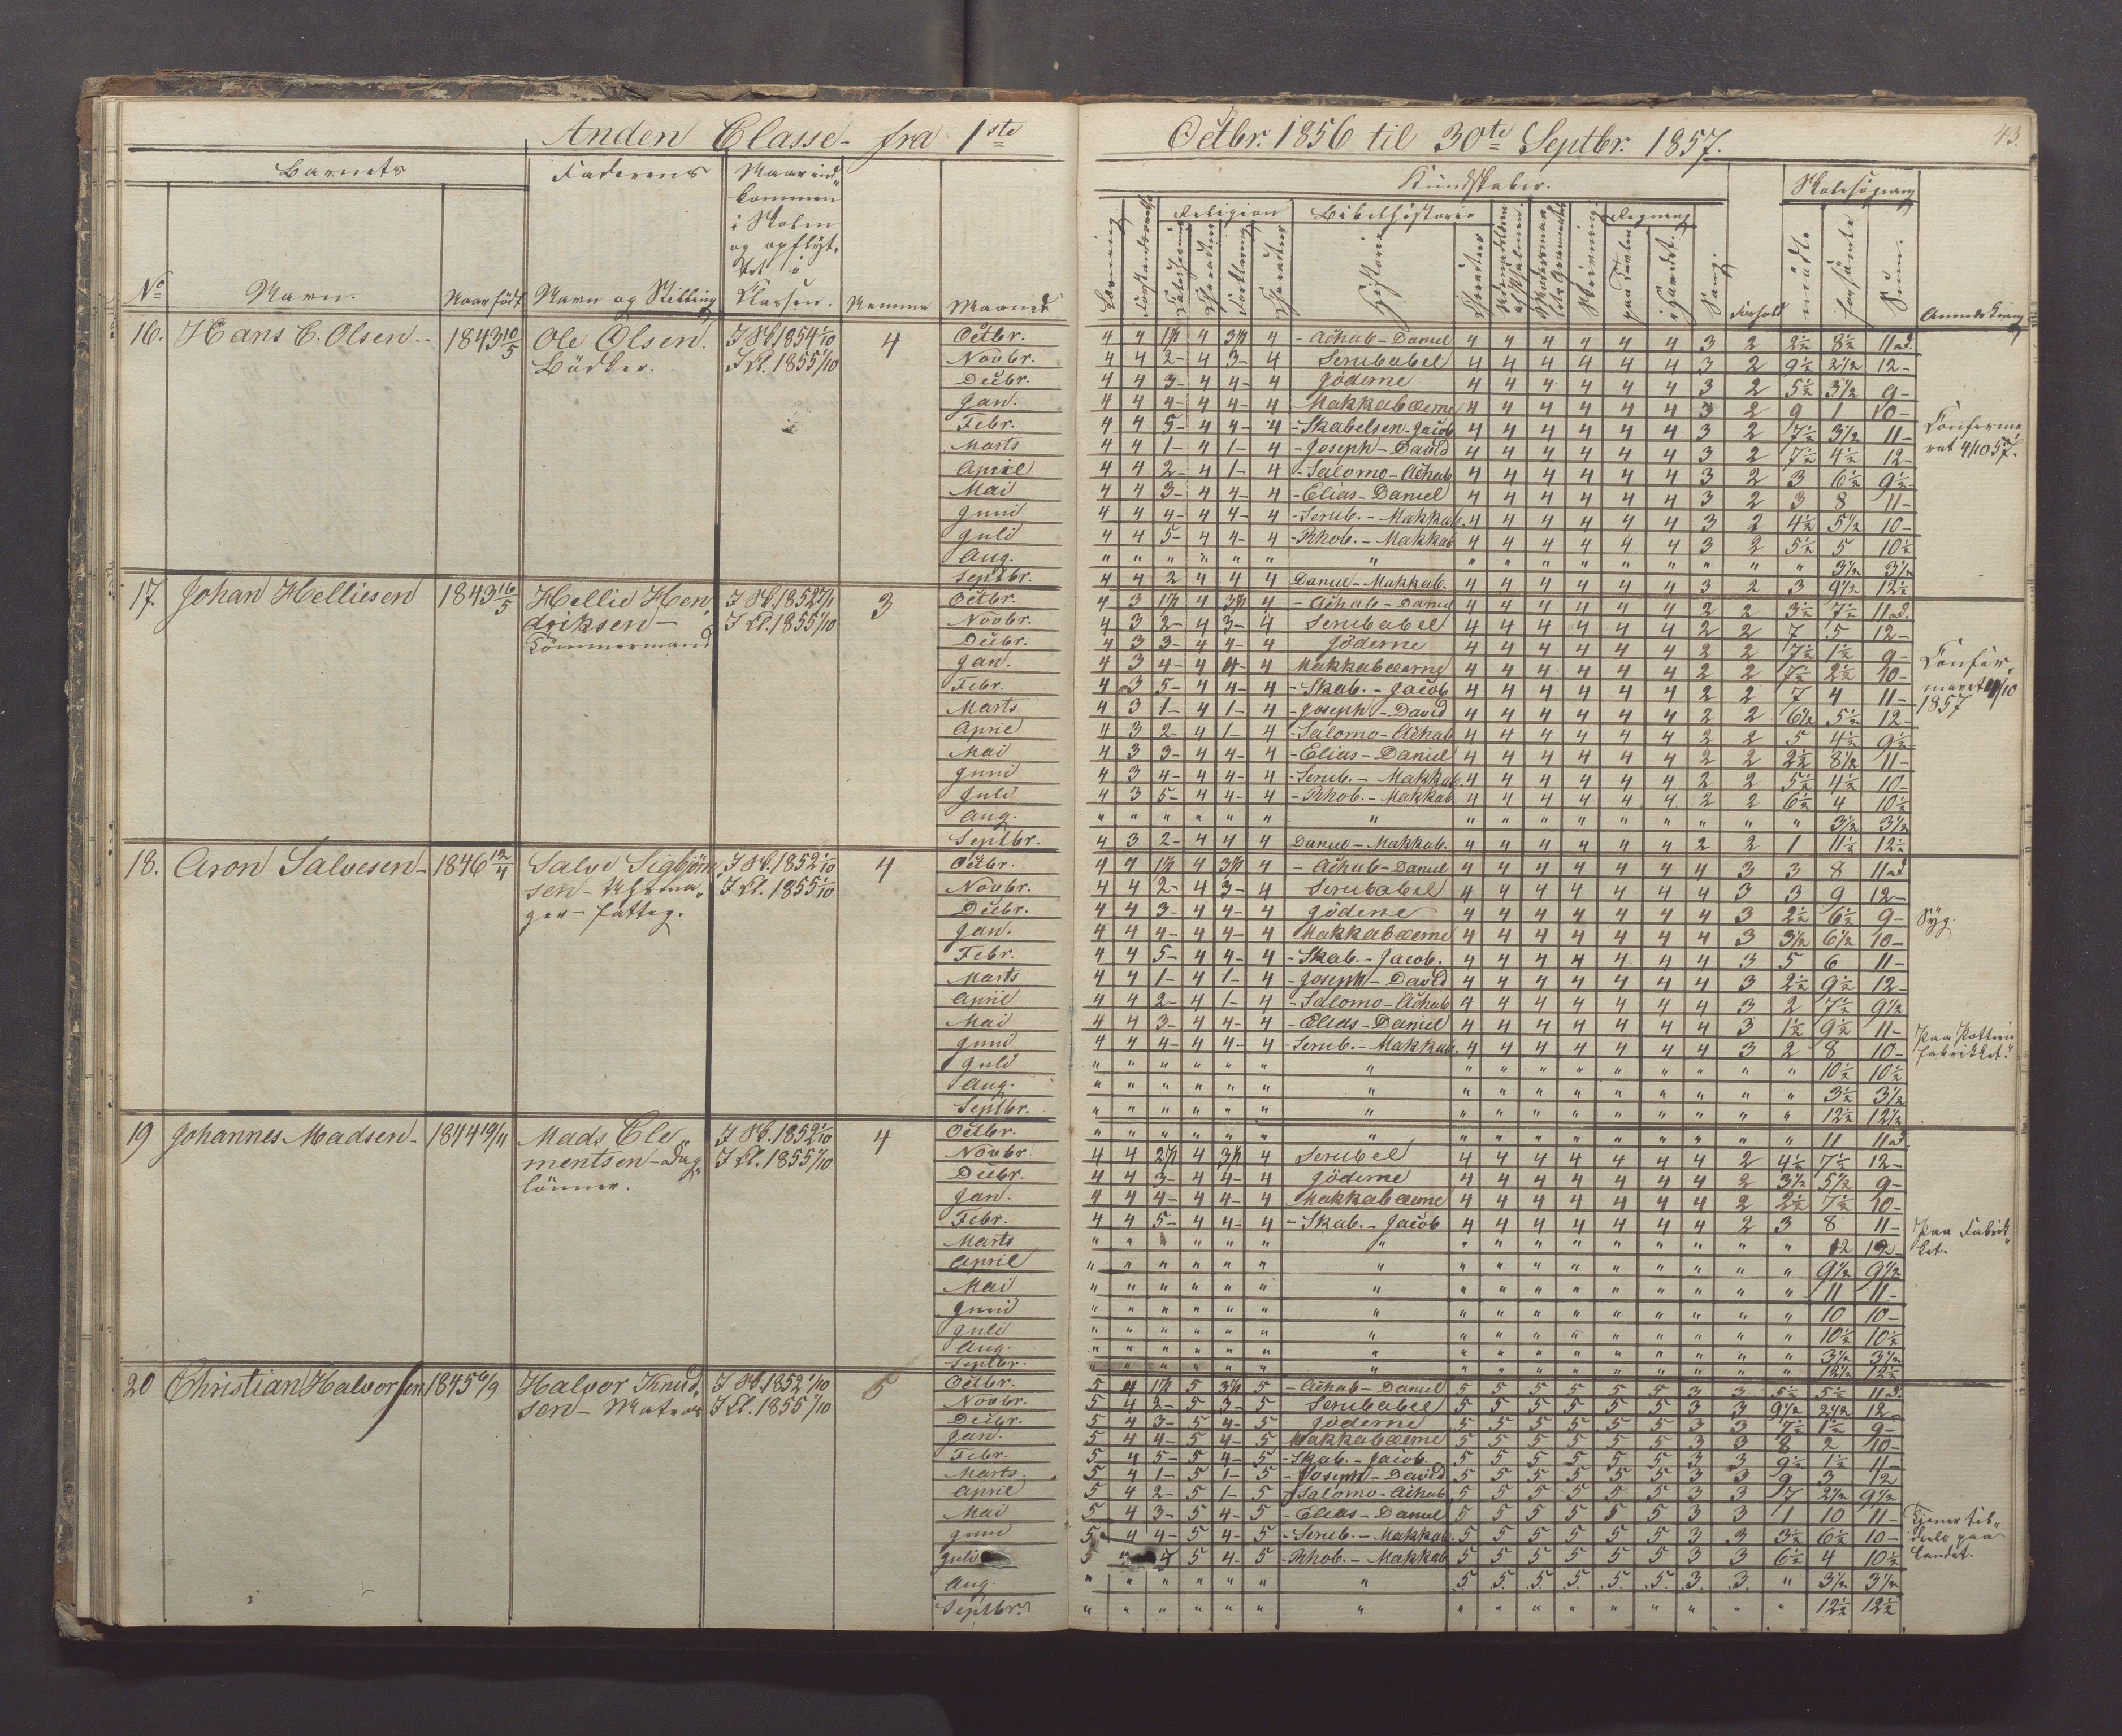 Anden Classe fra 1ste Octbr. 1856 til 30te Septbr. 1857.
43.
Barnets
Faderens
Naar ind-
kommen
i Skolen
og opflyt-
tet i
Classen.
No
Navn.
Naar født
Navn og Stilling
Nemme
Maaned
Kundskaber.
Skolesøgning
Religion
Bibelhistorie
Regning
Læsning
Forklaring
Charakter
Historie
Charakter
Skrivning
paa Tavlen
i Hovedet.
Sang.
Forhold
mødte
forsømte
Sum.
Anmærkning
16. Hans C. Olsen 1843 10/5 Ole Olsen. I Sk. 1854 1/10 4
Bødker. I Cl. 1855 1/10
Octbr. 4 4 1½ 4 3½ 4 - Achab - Daniel 4 4 4 4 4 4 3 2 2½ 8½ 11 ad.
Novbr. 4 4 2 - 4 3 - 4 Serubabel 4 4 4 4 4 4 3 2 9½ 2½ 12 -
Decbr. 4 4 3 - 4 4 - 4 Jøderne 4 4 4 4 4 4 3 2 5½ 3½ 9 -
Jan. 4 4 4 - 4 4 - 4 Makkabæerne 4 4 4 4 4 4 3 2 9 1 10 -
Febr. 4 4 5 - 4 4 - 4 - Skabelsen - Jacob 4 4 4 4 4 4 3 2 7½ 3½ 11 -
Marts 4 4 1 - 4 1 - 4 - Joseph - David 4 4 4 4 4 4 3 2 7½ 4½ 12 -
April 4 4 2 - 4 1 - 4 - Salomo - Achab 4 4 4 4 4 4 3 2 3 6½ 9½
Mai 4 4 3 - 4 4 - 4 - Elias - Daniel 4 4 4 4 4 4 3 2 3 8 11 -
Juni 4 4 4 - 4 4 - 4 - Serub. - Makkab. 4 4 4 4 4 4 3 2 4½ 5½ 10 -
Juli 4 4 5 - 4 4 - 4 - Rhob. - Makkab 4 4 4 4 4 4 3 2 5½ 5 10½
Aug. " " " " " " " " " " " " " " " " 3½ 3½
Septbr. 4 4 2 4 4 4 Daniel - Makkab. 4 4 4 4 4 4 3 2 3 9½ 12½
Confirme
ret 4/10 57.
17 Johan Helliesen 1843 16/5 Hellie Hen I Sk. 1852 27/1 3
driksen - I Cl. 1855 1/10
Tømmermand
Octbr. 4 3 1½ 4 3½ 4 - Achab - Daniel 4 4 4 4 4 4 2 2 3½ 7½ 11 ad.
Novbr. 4 3 2 - 4 3 - 4 Serubabel 4 4 4 4 4 4 2 2 7 5 12 -
Decbr. 4 3 3 - 4 4 - 4 Jøderne 4 4 4 4 4 4 2 2 7½ 1½ 9 -
Jan. 4 3 4 - 4 4 - 4 Makkabæerne 4 4 4 4 4 4 2 2 7½ 2½ 10 -
Febr. 4 3 5 - 4 4 - 4 - Skab. - Jacob 4 4 4 4 4 4 2 2 7 4 11 -
Marts 4 3 1 - 4 1 - 4 - Joseph - David 4 4 4 4 4 4 2 2 6½ 5½ 12 -
April 4 3 2 - 4 1 - 4 - Salomo - Achab 4 4 4 4 4 4 2 2 5 4½ 9½
Mai 4 3 3 - 4 4 - 4 - Elias - Daniel 4 4 4 4 4 4 2 2 2½ 8½ 11 -
Juni 4 3 4 - 4 4 - 4 - Serub. - Makkab. 4 4 4 4 4 4 2 2 5½ 4½ 10 -
Juli 4 3 5 - 4 4 - 4 - Rhob. - Makkab 4 4 4 4 4 4 2 2 6½ 4 10½
Aug. " " " " " " " " " " " " " " " " 3½ 3½
Septbr. 4 3 2 - 4 4 4 Daniel - Makkab. 4 4 4 4 4 4 2 2 1 11½ 12½
Confir-
meret 4/10
1857
18. Aron Salvesen - 1846 12/4 Salve Sigbjørn I Sk. 1852 1/10 4
sen - Uhrma- I Cl. 1855 1/10
ger - fattig.
Octbr. 4 4 1½ 4 3½ 4 - Achab - Daniel 4 4 4 4 4 4 4 3 3 8 11 ad
Novbr. 4 4 2 - 4 3 - 4 Serubabel 4 4 4 4 4 4 4 3 3 9 12 -
Decbr. 4 4 3 - 4 4 - 4 Jøderne 4 4 4 4 4 4 4 3 2½ 6½ 9 -
Jan. 4 4 4 - 4 4 - 4 Makkabæerne 4 4 4 4 4 4 4 3 3½ 6½ 10 -
Febr. 4 4 5 - 4 4 - 4 - Skab. - Jacob. 4 4 4 4 4 4 4 3 5 6 11 -
Marts 4 4 1 - 4 1 - 4 - Joseph - David 4 4 4 4 4 4 4 3 2½ 9½ 12 -
April 4 4 2 - 4 1 - 4 - Salomo - Achab 4 4 4 4 4 4 4 3 2 7½ 9½
Mai 4 4 3 - 4 4 - 4 - Elias - Daniel 4 4 4 4 4 4 4 3 1½ 9½ 11 -
Juni 4 4 4 - 4 4 - 4 - Serub. - Makkab. 4 4 4 4 4 4 4 3 2 8 10 -
Juli " " " " " " " " " " " " " " " " 10½ 10½
Aug. " " " " " " " " " " " " " " " " 3½ 3½
Septbr. " " " " " " " " " " " " " " " " 12½ 12½
Syg.
Paa
fabrikket.
19 Johannes Madsen - 1844 19/11 Mads Cle I Sk. 1852 1/10 4
mentsen - Dag- I Cl. 1855 1/10
lønner.
Octbr. " " " " " " " " " " " " " " " " 11 11 ad
Novbr. 4 4 2½ 4 3½ 4 Serubel 4 4 4 4 4 4 4 2 4½ 7½ 12 -
Decbr. 4 4 3 - 4 4 - 4 Jøderne 4 4 4 4 4 4 4 2 3½ 5½ 9 -
Jan. 4 4 4 - 4 4 - 4 Makkabæerne 4 4 4 4 4 4 4 2 2½ 7½ 10 -
Febr. 4 4 5 - 4 4 - 4 - Skab. - Jacob 4 4 4 4 4 4 4 2 3 8 11 -
Marts " " " " " " " " " " " " " " " 12 12 -
April " " " " " " " " " " " " " " " " 9½ 9½
Mai " " " " " " " " " " " " " " " " 11 11 -
Juni " " " " " " " " " " " " " " " " 10 10 -
Juli " " " " " " " " " " " " " " " " 10½ 10½
Aug. " " " " " " " " " " " " " " " " 3½ 3½
Septbr. " " " " " " " " " " " " " " " " 12½ 12½
Paa Fabrik-
ket.
20 Christian Halvorsen 1845 6/9 Halvor Knud- I Sk. 1852 1/10 5
sen - Matros I Cl. 1855 1/10
Octbr. 5 4 1½ 5 3½ 5 - Achab - Daniel 5 5 5 5 5 5 3 3 5½ 5½ 11 ad.
Novbr. 5 4 2 - 5 3 - 5 Serubabel 5 5 5 5 5 5 3 3 9½ 2½ 12 -
Decbr. 5 4 3 - 5 4 - 5 Jøderne 5 5 5 5 5 5 3 3 7½ 1½ 9 -
Jan. 5 4 4 - 5 4 - 5 Makkabæerne 5 5 5 5 5 5 3 3 8 2 10 -
Febr. 5 4 5 - 5 4 - 5 - Skab. - Jacob. 5 5 5 5 5 5 3 3 9½ 1½ 11 -
Marts 5 4 1 - 5 1 - 5 - Joseph - David 5 5 5 5 5 5 3 3 9 3 12
April 5 4 2 - 5 1 - 5 - Salomo - Achab 5 5 5 5 5 5 3 3 7 2½ 9½
Mai 5 4 3 - 5 4 - 5 - Elias - Daniel 5 5 5 5 5 5 3 3 1 10 11 -
Juni 5 4 4 - 5 4 - 5 - Serub. - Makkab. 5 5 5 5 5 5 3 3 3½ 6½ 10 -
Juli 5 5 4 - 5 - Rhob. - Makkab 5 5 5 5 5 5 3 3 6½ 4 10½
Aug. " " " " " " " 5 5 5 5 5 5 3 3 " 3½ 3½
Septbr. " " " " " " " " " " " " " " " " 12½ 12½
Tjener til-
deels paa
Landet.